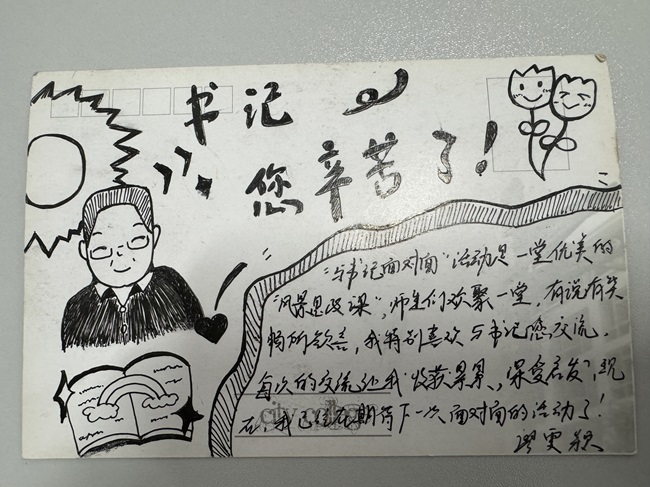 书记
您辛苦了!
“与书记面对面”活动是一堂优美的
“风景思政课”,师生们欢聚一堂,有说有笑
畅所欲言,我特别喜欢与书记交流。
每次的交流让我收获累累、深受启发,现
在,我已经在期待下一次面对面的活动了!